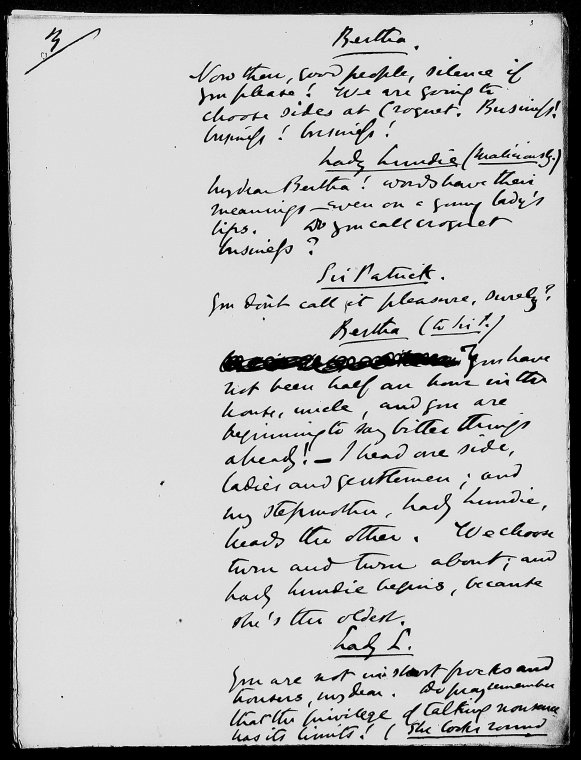 3
3
Bertha.
Now then, good people, silence if
you please! We are going to
choose sides at Croquet. Business!
business! business!
Lady Lundie (Maliciously.)
My dear Bertha! words have their
meanings — even on a young lady's
lips. Do you call croquet
business?
Sir Patrick.
You don't call it pleasure, surely?
Bertha (to Sir P.)
You have
not been half an hour in the
house, uncle, and you are
beginning to say bitter things
already! — I head one side,
ladies and gentlemen; and
my stepmother, Lady Lundie,
heads the other. We choose
turn and turn about; and
Lady Lundie begins, because
she's the oldest.
Lady L.
You are not in short frocks and
trousers, my dear. Do pray remember
that the privilege of talking nonsense
has its limits! (She looks round